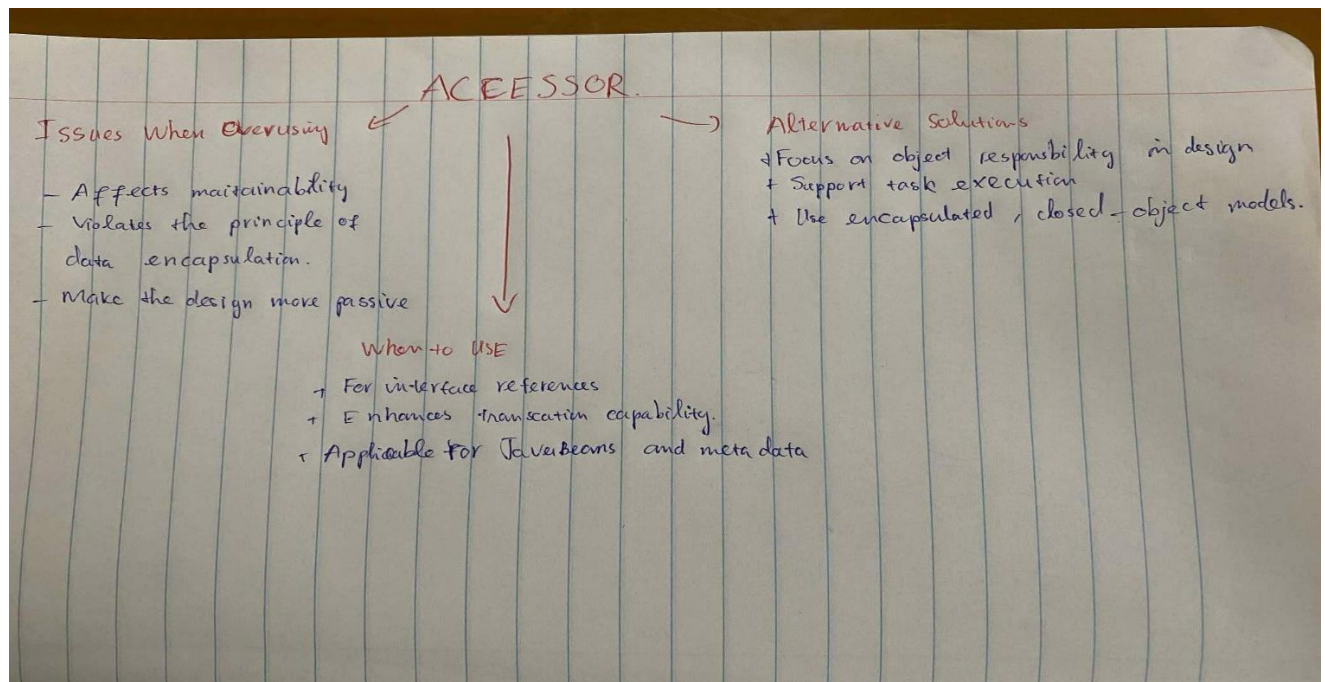 ACEESSOR.
Issues When Overusing
- Affects maitainability
- Violates the principle of
data encapsulation.
- Make the design more passive
When to USE
+ For interface references
+ Enhances transcation capability.
+ Applicable for JavaBeans and meta data
Alternative Solutions
+ Focus on object responsbility in design
+ Support task execution
+ Use encapsulated, closed-object models.